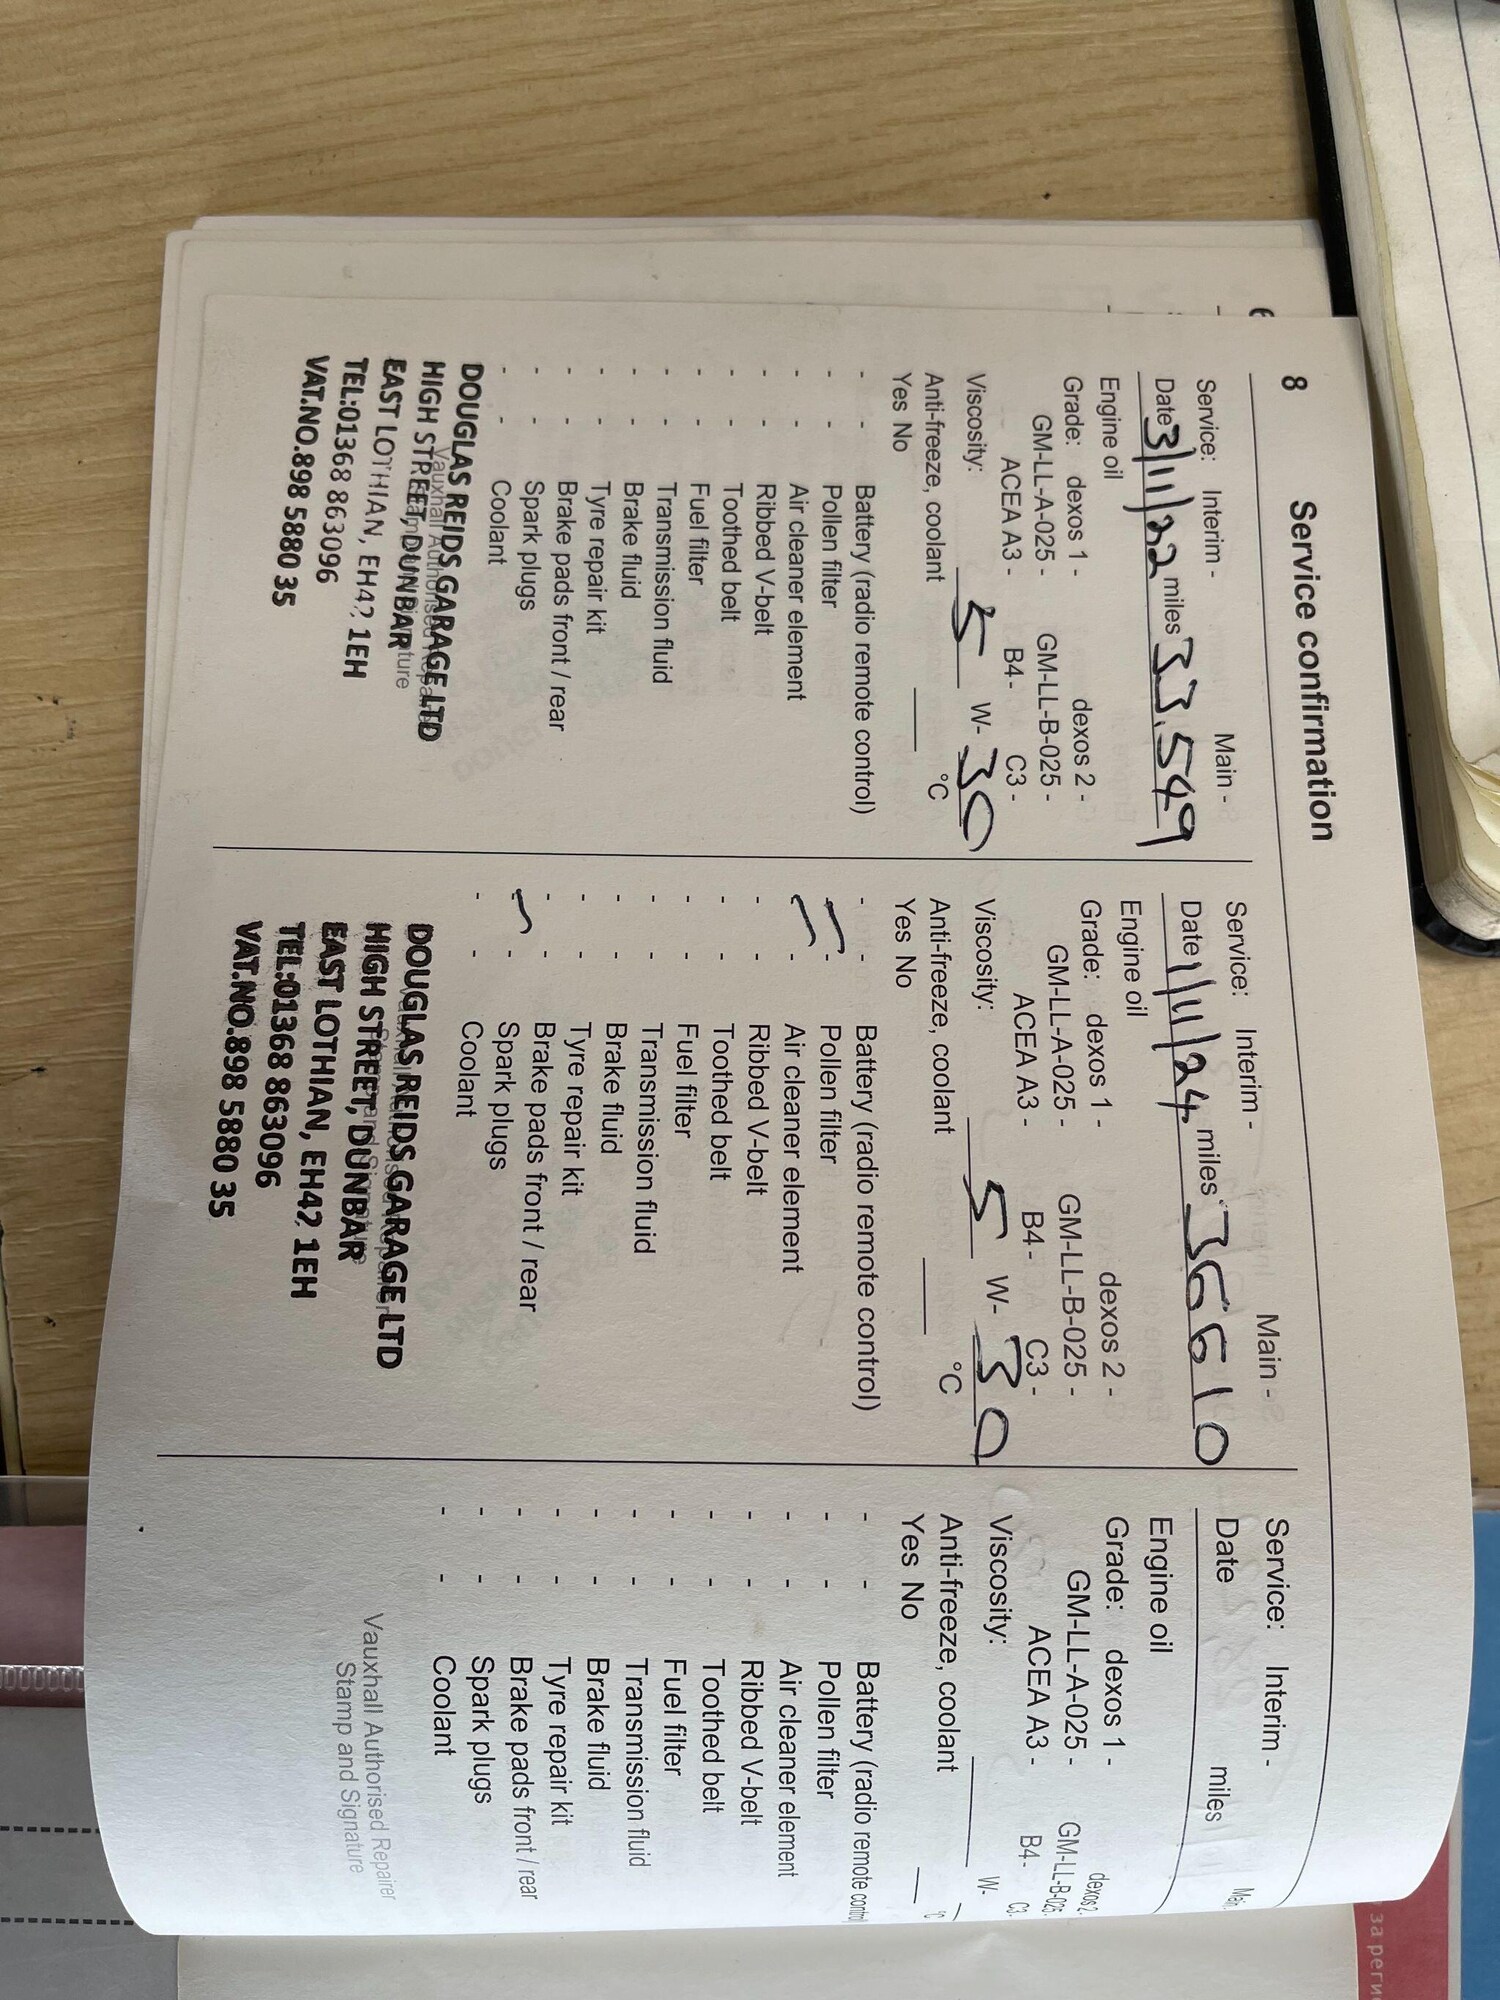 8 Service confirmation
Service: Interim - Main -
Date 3/11/22 miles 33,549
Engine oil
Grade: dexos 1 - dexos 2 -
GM-LL-A-025 - GM-LL-B-025 -
ACEA A3 - B4 - C3 -
Viscosity: 5 W- 30
Anti-freeze, coolant °C
Yes No
- - Battery (radio remote control)
- - Pollen filter
- - Air cleaner element
- - Ribbed V-belt
- - Toothed belt
- - Fuel filter
- - Transmission fluid
- - Brake fluid
- - Tyre repair kit
- - Brake pads front / rear
- - Spark plugs
- - Coolant
DOUGLAS REIDS GARAGE LTD
HIGH STREET, DUNBAR
EAST LOTHIAN, EH42 1EH
TEL:01368 863096
VAT.NO.898 5880 35
Service: Interim - Main -
Date 1/11/24 miles 36610
Engine oil
Grade: dexos 1 - dexos 2 -
GM-LL-A-025 - GM-LL-B-025 -
ACEA A3 - B4 - C3 -
Viscosity: 5 W- 30
Anti-freeze, coolant °C
Yes No
- - Battery (radio remote control)
- Pollen filter
- Air cleaner element
- - Ribbed V-belt
- - Toothed belt
- - Fuel filter
- - Transmission fluid
- - Brake fluid
- - Tyre repair kit
- - Brake pads front / rear
- Spark plugs
- - Coolant
DOUGLAS REIDS GARAGE LTD
HIGH STREET, DUNBAR
EAST LOTHIAN, EH42 1EH
TEL:01368 863096
VAT.NO.898 5880 35
Service: Interim - Main -
Date miles
Engine oil
Grade: dexos 1 - dexos 2 -
GM-LL-A-025 - GM-LL-B-025 -
ACEA A3 - B4 - C3 -
Viscosity: W-
Anti-freeze, coolant °C
Yes No
- - Battery (radio remote control)
- - Pollen filter
- - Air cleaner element
- - Ribbed V-belt
- - Toothed belt
- - Fuel filter
- - Transmission fluid
- - Brake fluid
- - Tyre repair kit
- - Brake pads front / rear
- - Spark plugs
- - Coolant
Vauxhall Authorised Repairer
Stamp and Signature